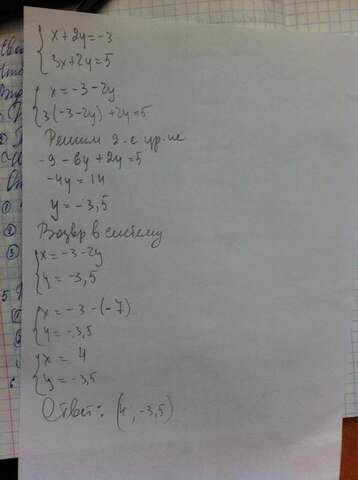 { x + 2y = -3
3x + 2y = 5
{ x = -3 - 2y
3(-3-2y) + 2y = 5
Решим 2-е ур-ие
-9 - 6y + 2y = 5
-4y = 14
y = -3,5
Возвр в систему
{ x = -3 - 2y
y = -3,5
{ x = -3 - (-7)
y = -3,5
{ x = 4
y = -3,5
Ответ: (4, -3,5)